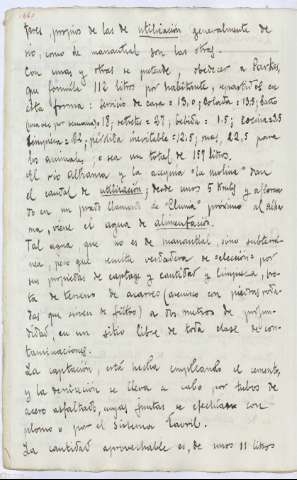 pores, propios de las de utilización generalmente de
rio, como de manantial son las otras.
Con unas y otras se puede, obedecer a Parkes,
que formula 112 litros por habitante, repartidos en
esta forma: servicio de casa = 13,0; = 13,5; baño
(una vez por semana) = 18; retretes = 27; bebida = 1.5; cocina = 3.5
limpieza = pérdida inevitable = 12.5; mas, 22,5 para
los animales; o sea un total de 159 litros.
El rio Alhama y la acequia "la molina" dan
el caudal de utilización; desde unos 5 Kmts y aflorando
en un prado llamado de "Cluna" próximo al Alhama,
viene el agua de alimentación.
Tal agua que no es de manantial, sino subterránea,
pero que resulta verdadera de "elección" por
sus propiedades de captage y cantidad y limpieza, brota
de terreno de acarreo (arenisco con piedras rodadas
que sirven de filtro) a dos metros de profundidad,
en un sitio libre de toda clase de contaminaciones.
La captación, está hecha empleando el cemento,
y la derivación se lleva a cabo por tubos de
acero asfaltado, cuyas juntas se efectúan con
plomo o por el Sistema Lavril.
La cantidad aprovechable es, de unos 11 litros